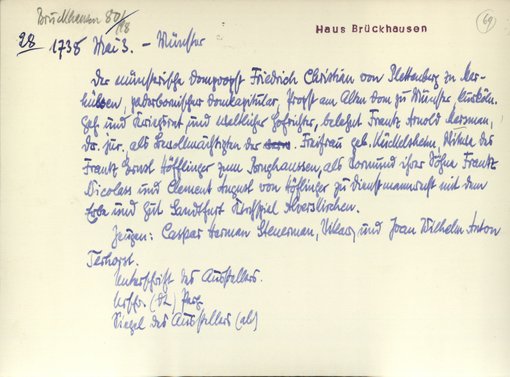 Bruckhausen 80/28
Haus Brückhausen
69
28 1738 Mai 3. - Münster
Der münsterische Dompropst Friedrich Christian von Plettenberg zu Mar-
hülsen, paderbornischer Domkapitular, Propst am Alten Dom zu Münster, kurköln.
Geh. und Kriegsrat und weltlicher Hofrichter, belehnt Frantz Arnold
Dr. jur. als Bevollmächtigten der Freifrau geb. Witwe des
Frantz Ernst Höfflinger zum Borghaussen, als Vormund ihrer Söhne Frantz
Nicolass und Clement August von Höflinger zu Dienstmannrecht mit dem
Erbe und Gut Sandtfurt Kirchspiel Alverskirchen.
Zeugen: Caspar Herman Steuerman, Vikar, und Joan Wilhelm Anton
Terhorst.
Unterschrift des Ausstellers.
Urschr. (Dt.) Perg.
Siegel des Ausstellers (ab)